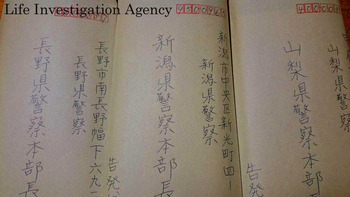 Life Investigation Agency
山梨県
山梨県警察本部長
告発
新潟市中央区新光町四ー
新潟県警察
新潟県警察本部長
告発
長野市南長野幅下六九二
長野県警察
長野県警察本部長